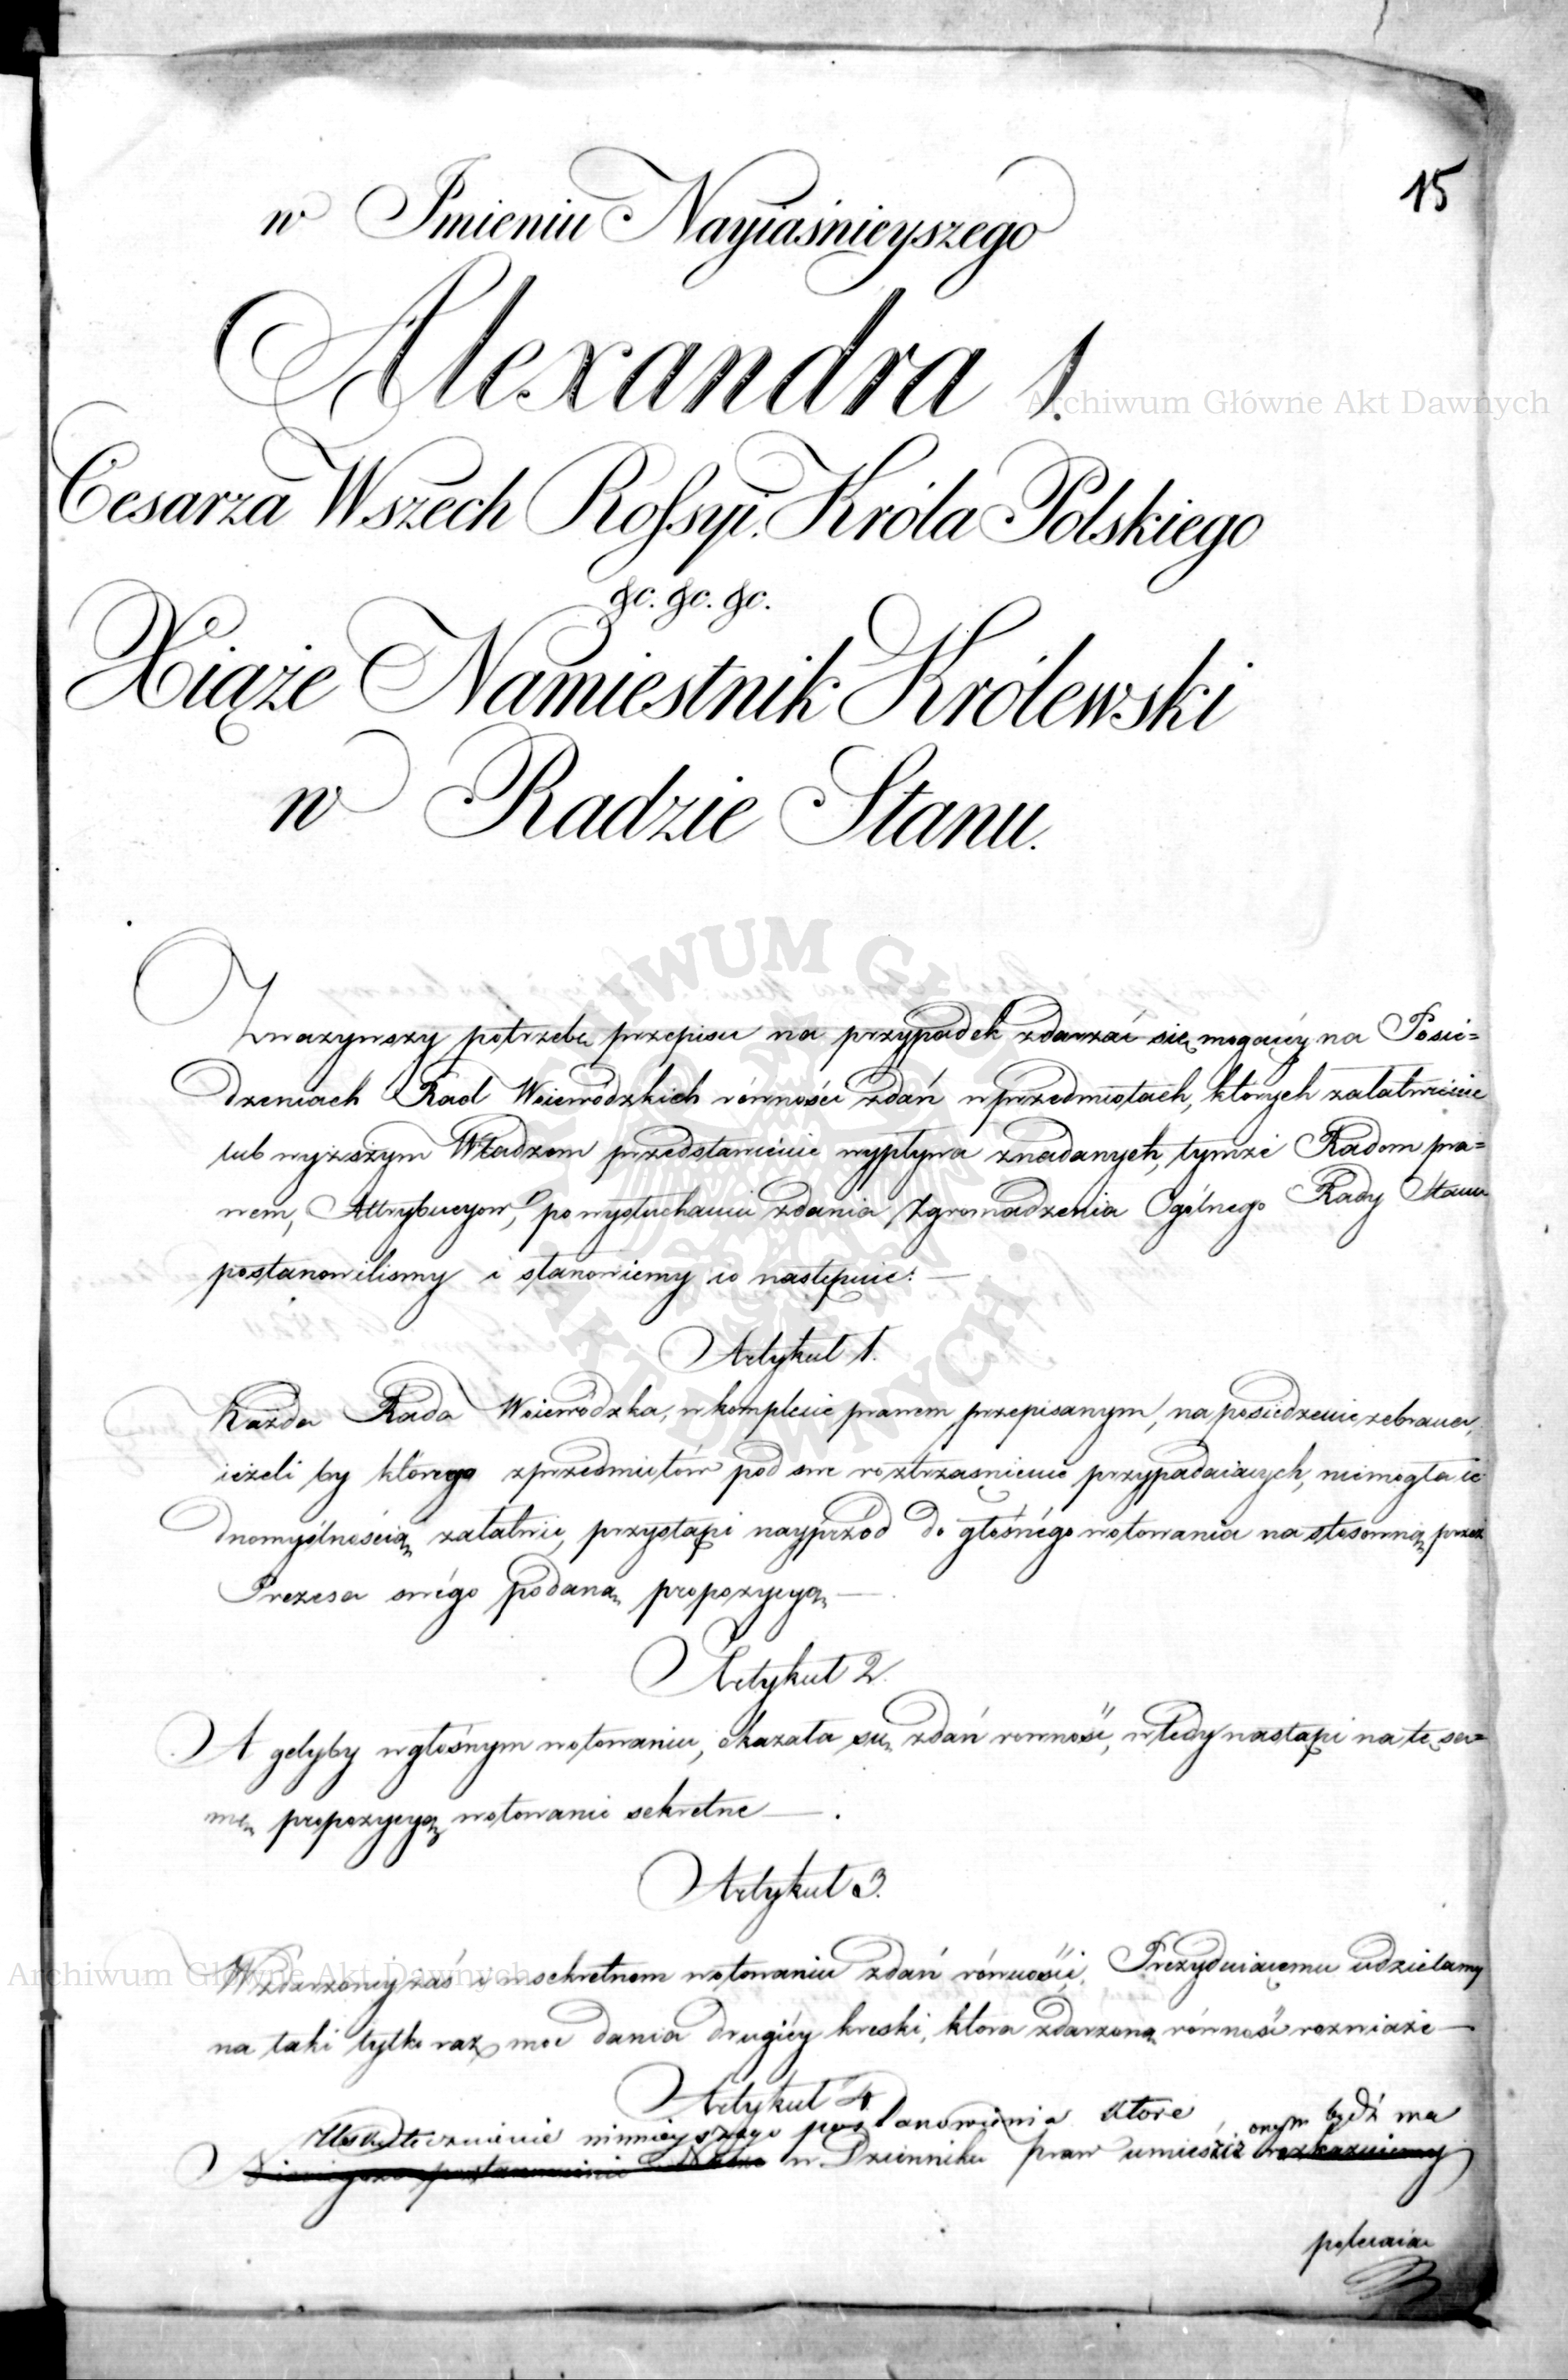 15
w Imieniu Nayiaśnieyszego
Alexandra I.
Cesarza Wszech Rossyi. Króla Polskiego
&c. &c. &c.
Xiąże Namiestnik Królewski
w Radzie Stanu.
Zważywszy potrzebę przepisu na przypadek zdarzać się mogący na Posie=
dzeniach Rad Woiewódzkich równości zdań w przedmiotach, których załatwienie
lub wyższym Władzom przedstawienie wypływa z nadanych, tymże Radom pra=
wem, Attrybucyow, po wysłuchaniu zdania Zgromadzenia Ogólnego Rady Stanu
postanowiliśmy i stanowiemy co następuie: —
Artykuł 1.
Każda Rada Woiewódzka, w komplecie prawem przepisanym, na posiedzenie zebrana,
ieżeli by którego z przedmiotów pod swe roztrząśnienie przypadaiących, niemogła ie
dnomyślnością załatwić, przystąpi nayprzód do głośnégo wotowania na stosowną przez
Prezesa swégo podaną propozycyą —
Artykuł 2.
A gdyby w głośnym wotowaniu, okazała się zdań rowność, wtedy nastąpi na tę sa=
mę propozycyą wotowanie sekretne —.
Artykuł 3.
W zdarzoney zaś i w sekretnem wotowaniu zdań równości, Prezyduiącemu udzielamy
na taki tylko raz moc dania drugiéy kreski, która zdarzoną równość rozwiąże —
Artykuł 4.
Uskutecznienie ninieyszego postanowienia które onym bydź ma
Ninieysze postanowienie w Dzienniku praw umieścić rozkazuiemy
polecaiąc